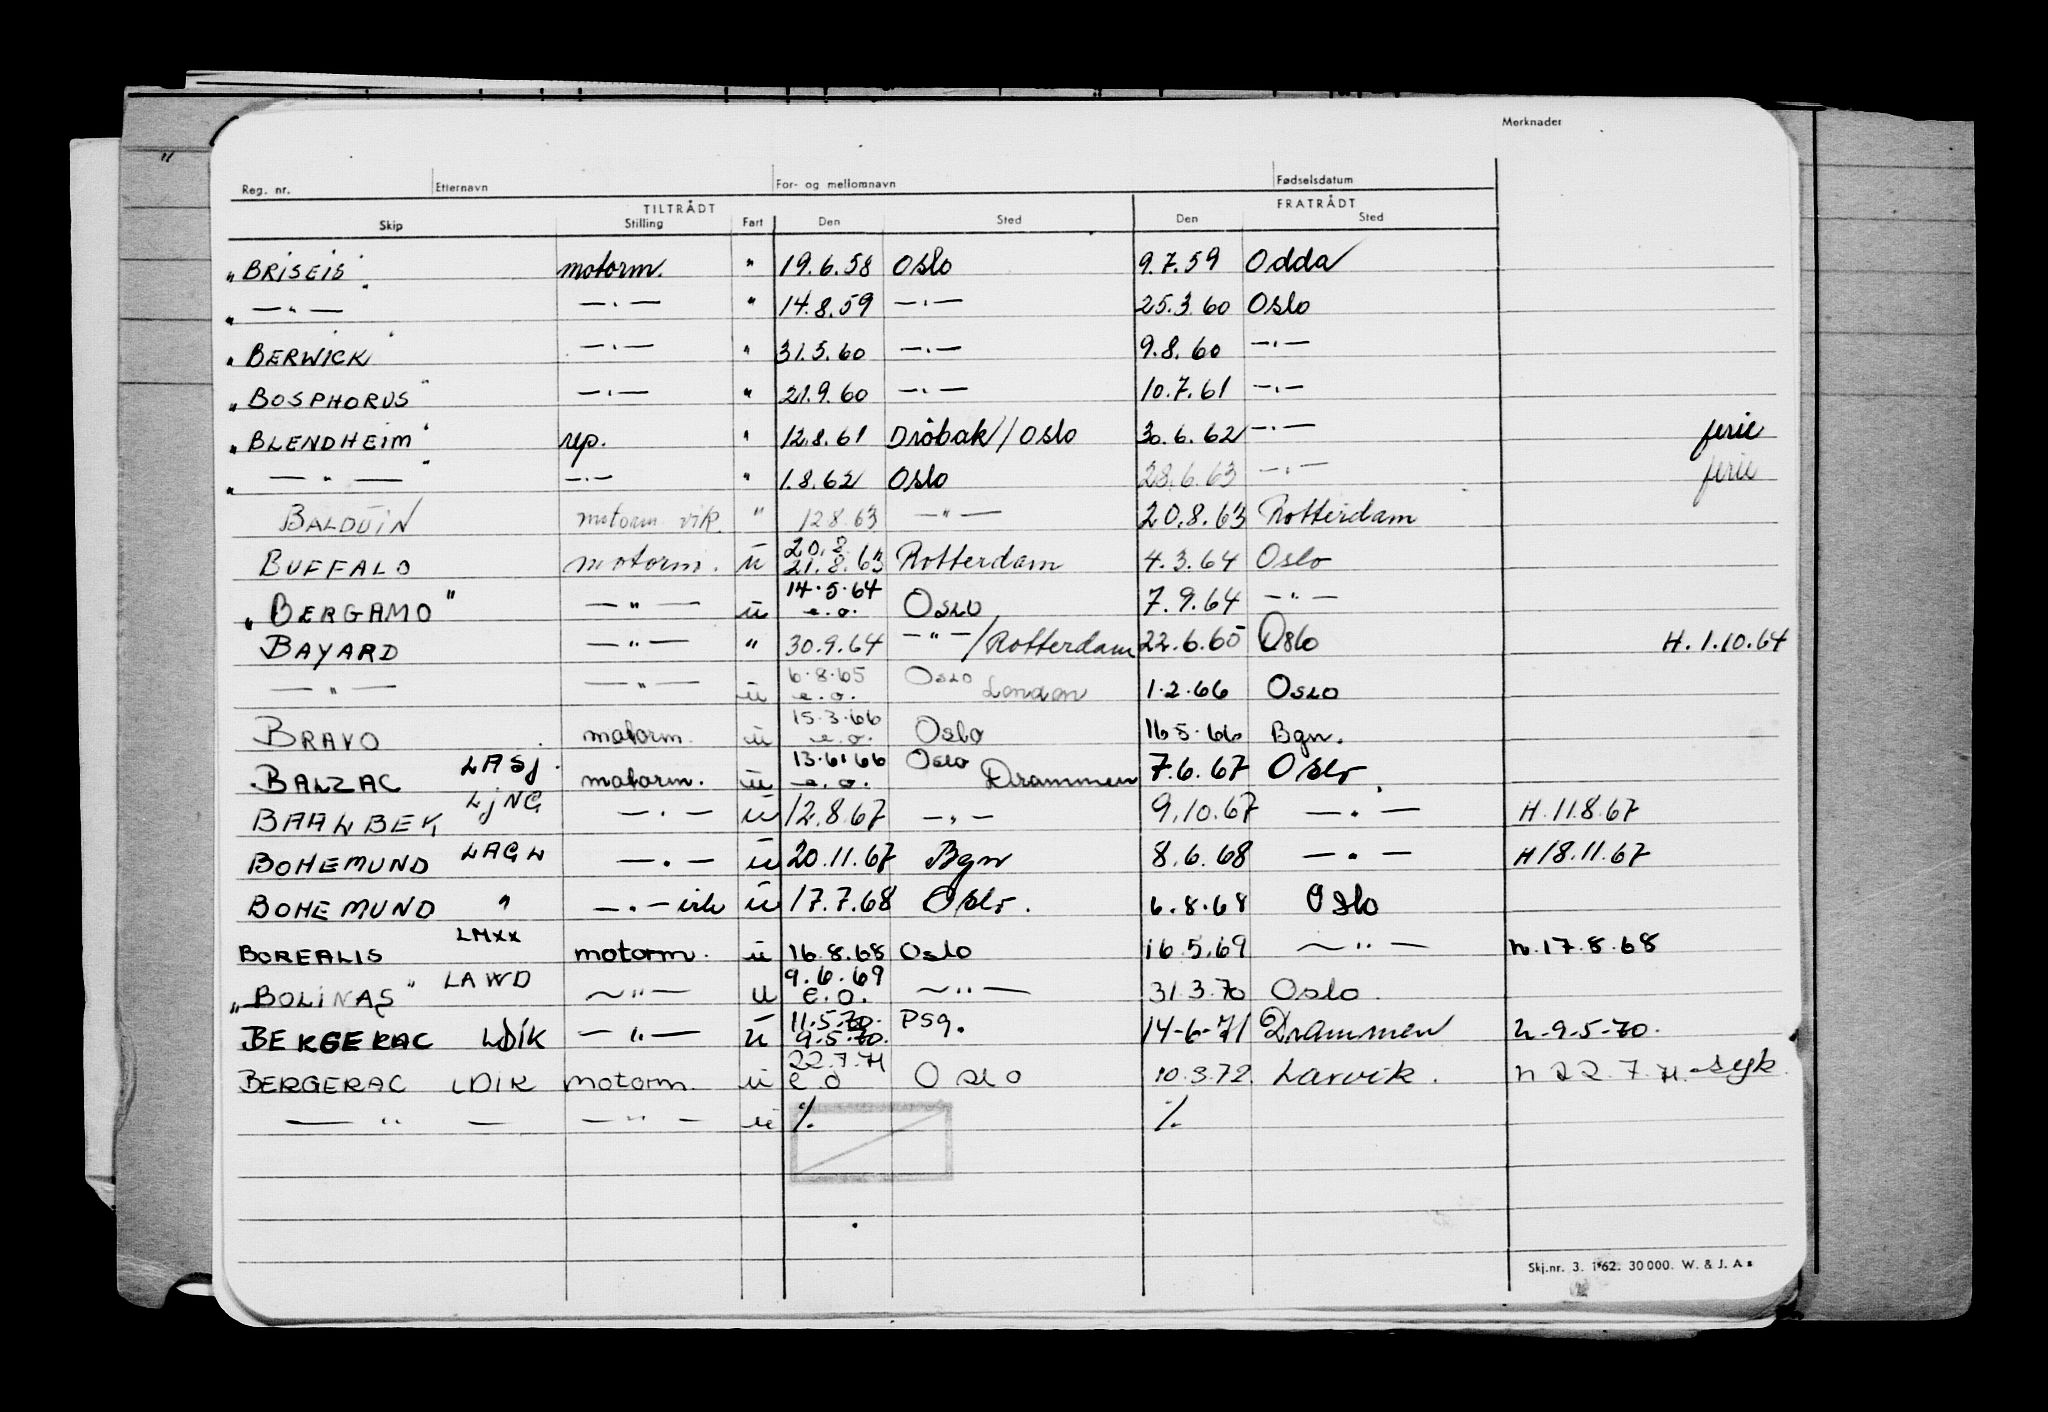 Merknader
Reg. nr. Etternavn For- og mellomnavn Fødselsdatum
TILTRÅDT FRATRÅDT
Skip Stilling Fart Den Sted Den Sted
„BRISEIS" motorm. " 19.6.58 Oslo 9.7.59 Odda
„ — " — " — . — " 14.8.59 — . — 25.3.60 Oslo
„BERWICK" — . — " 31.5.60 — . — 9.8.60 — . —
„BOSPHORUS" — . — " 21.9.60 — . — 10.7.61 — . —
„BLENDHEIM" rep. " 12.8.61 Dröbak/Oslo 30.6.62 — . — ferie
„ — " — " — . — " 1.8.62 Oslo 28.6.63 — . — ferie
BALDUIN motorm vik. " 12.8.63 — " — 20.8.63 Rotterdam
20.8.
BUFFALO motorm. u 21.8.63 Rotterdam 4.3.64 Oslo
14.5.64
„BERGAMO" — " — u e.o. Oslo 7.9.64 — " —
BAYARD — " — " 30.9.64 — " —/Rotterdam 22.6.65 Oslo H. 1.10.64
6.8.65 Oslo
— " — — " — u e.o. London 1.2.66 Oslo
15.3.66
BRAVO motorm. u e.o. Oslo 16.5.66 Bgn.
LASJ 13.6.66 Oslo
BALZAC motorm. u e.o. Drammen 7.6.67 Oslo
BAALBEK LJNG — . — u 12.8.67 — " — 9.10.67 — " — H. 11.8.67
BOHEMUND LAGL — . — u 20.11.67 Bgn 8.6.68 — " — H 18.11.67
BOHEMUND " — . — vik u 17.7.68 Oslo. 6.8.68 Oslo
BOREALIS LMXX motorm. u 16.8.68 Oslo 16.5.69 — " — h. 17.8.68
9.6.69
„BOLINAS" LAWD — " — u e.o. — " — 31.3.70 Oslo.
11.5.70. Psg.
BERGERAC LDIK — " — u 9.5.70. 14-6-71 Drammen h. 9.5.70.
22.7.71
BERGERAC LDIK motorm. u e o Oslo 10.3.72. Larvik. h 22.7.71. syk.
— " — — " — u ·/. ·/.
Skj.nr. 3. 1*62. 30 000. W. & J. A s